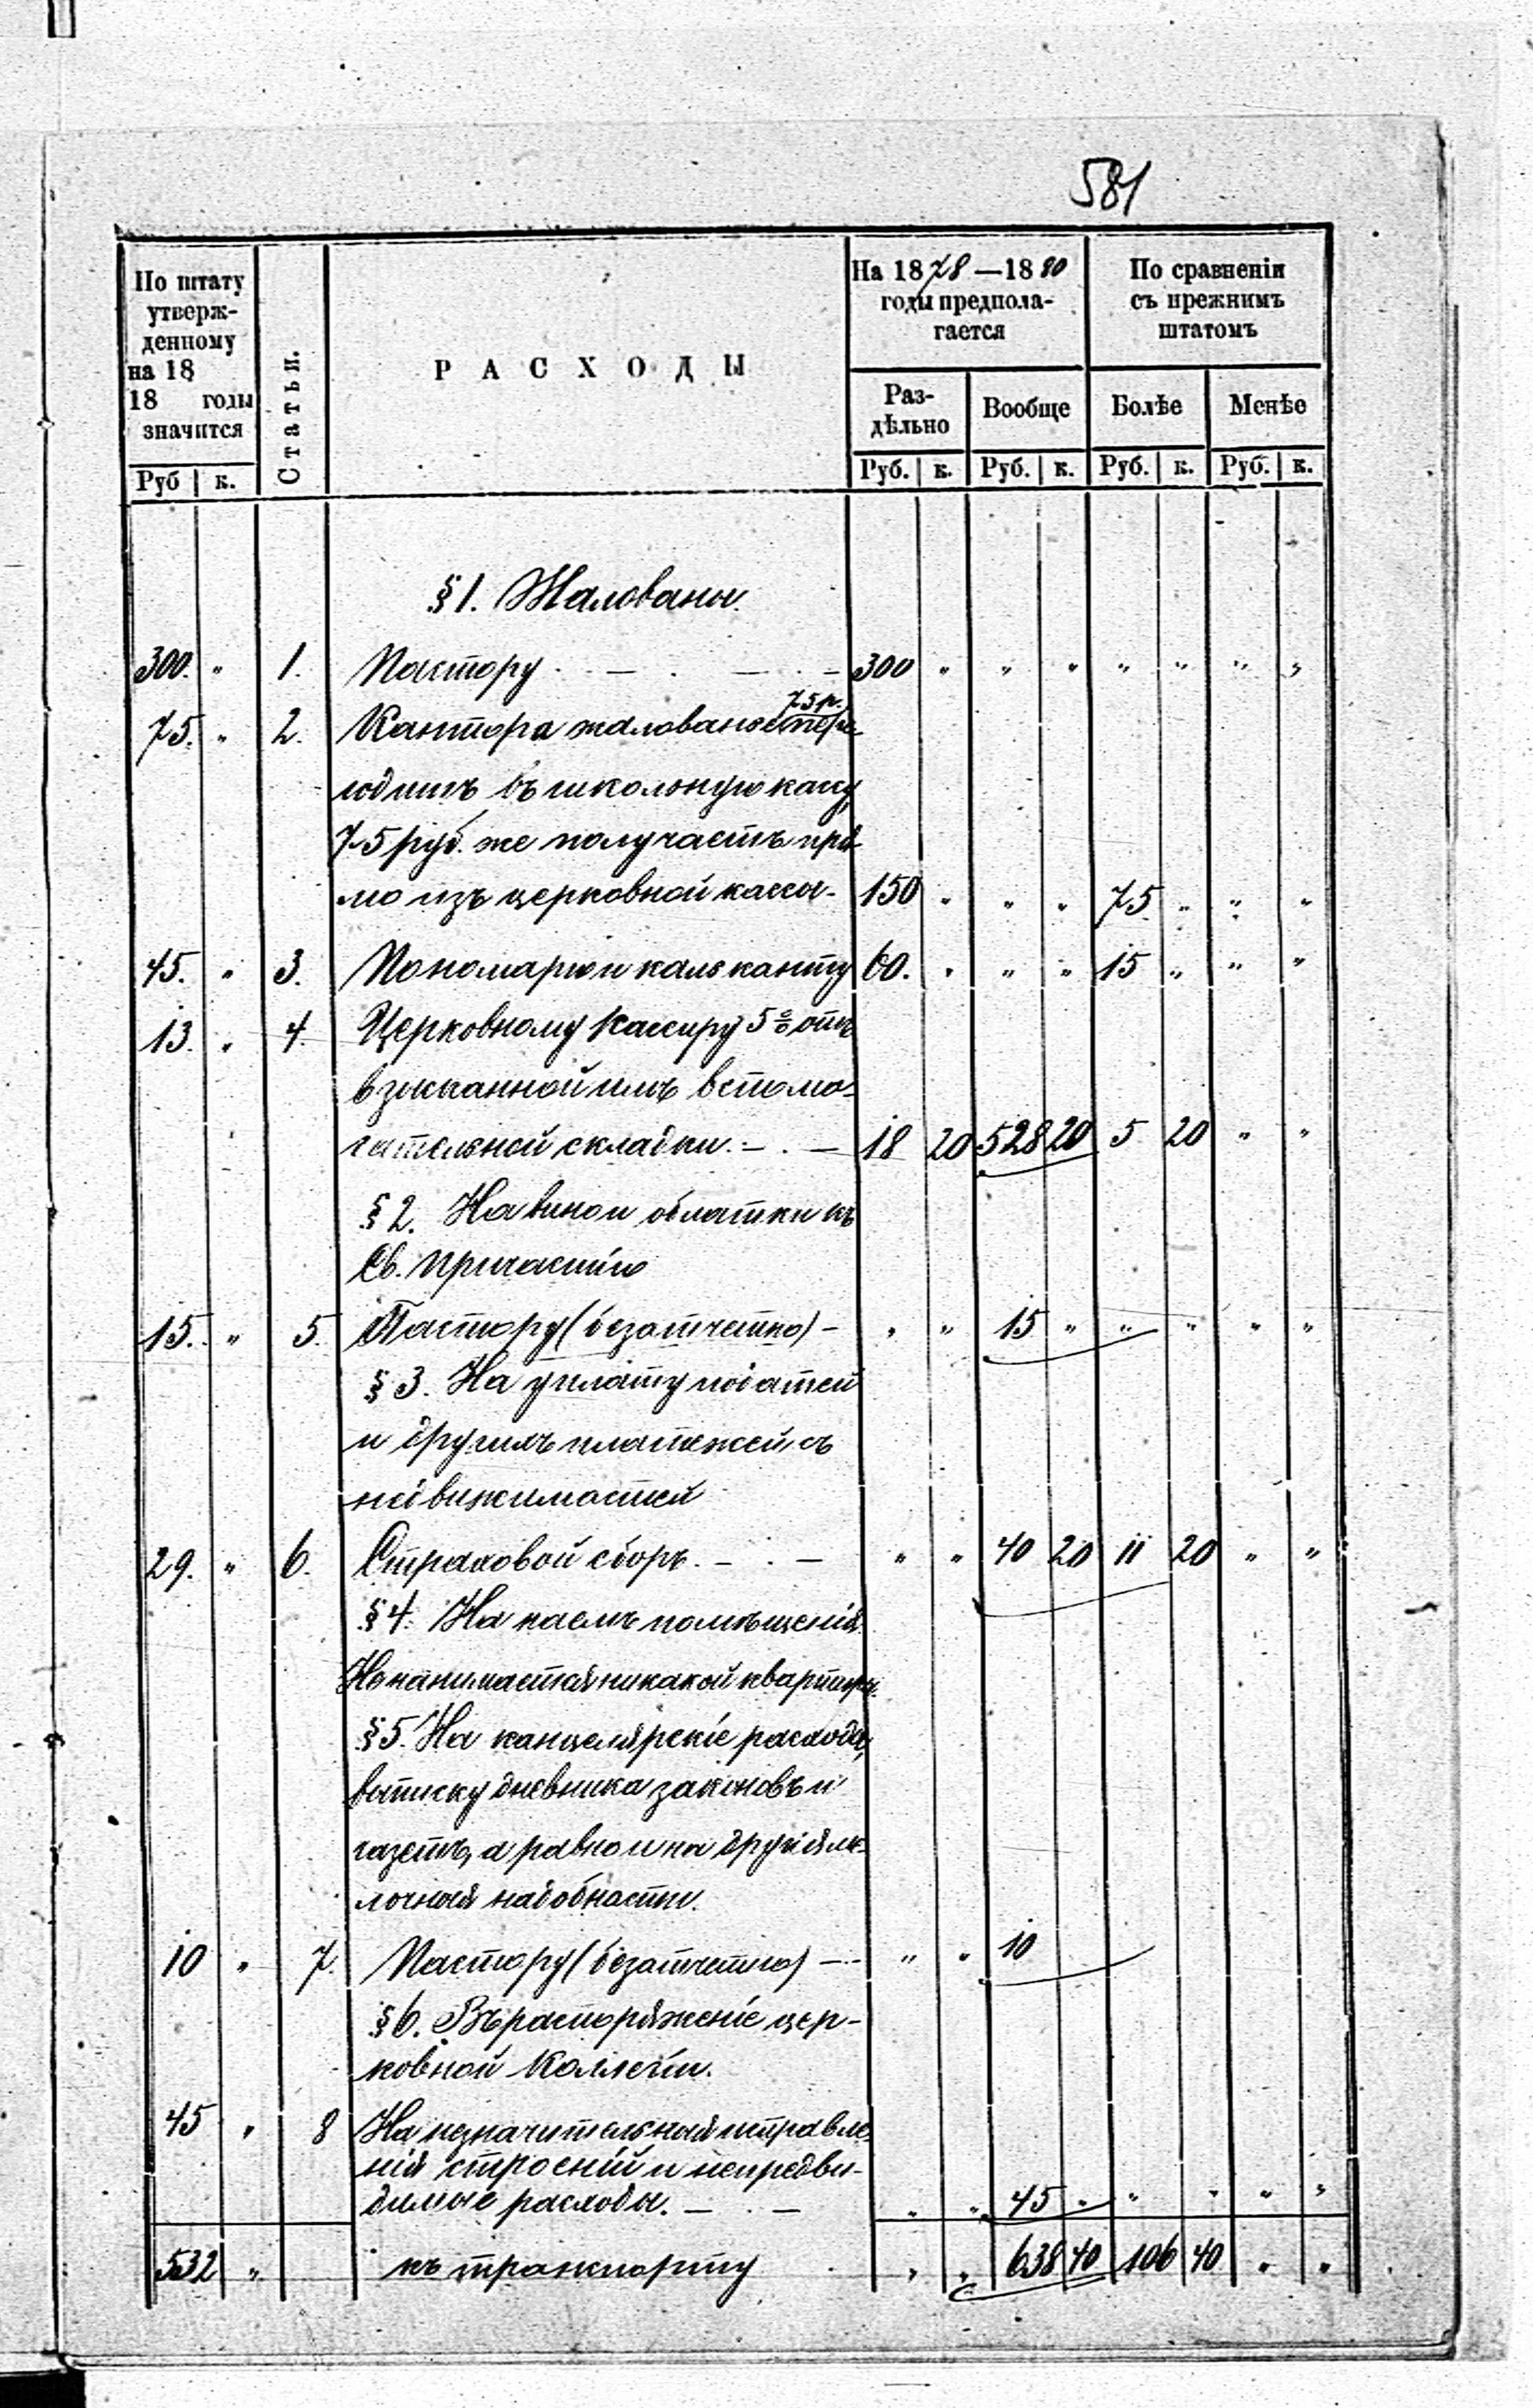 581
По штату утверж- денному на 18 18 годы значится
Статьи.
РАСХОДЫ
На 1878—1880 годы предпола- гается
По сравненіи съ прежнимъ штатомъ
Раз- дѣльно Вообще Болѣе Менѣе
Руб к. Руб. к. Руб. к. Руб. к. Руб. к.
§ 1. Жалованы.
300. " 1. Пастору - - - 300 " " " " " " "
75 р.
75. " 2. Кантора жалованье пере
ходитъ въ школьную кассу
75 руб. же получаетъ пря
мо изъ церковной кассы- 150 " " " 75 " " "
45. " 3. Пономарю и кальканту 60. " " " 15 " " "
13. " 4. Церковному Кассиру 5% отъ
взысканной имъ вспомо-
гательной складки. - . - 18 20 528 20 5 20 " "
§ 2. На вино и облатки къ
Св. Причастію
15. " 5. Пастору (безотчетно) - " " 15 " " " " "
§ 3. На уплату податей
и другихъ платежей съ
недвижимостей
29. " 6. Страховой сборъ. - . - " " 40 20 11 20 " "
§ 4. На наемъ помѣщенія.
Не нанимается никакой квартиры.
§ 5. На канцелярскіе расходы,
выписку дневника законовъ и
газетъ, а равно и на другія ме-
лочныя надобности.
10 " 7. Пастору (безотчетно) - - " " 10
§ 6. Въ распоряженіе цер-
ковной Коллегіи.
45 " 8 На незначительныя исправле-
нія строеній и непредви-
димые расходы. - . - " " 45 " " " " "
532 " къ транспорту " " 638 40 106 40 " "